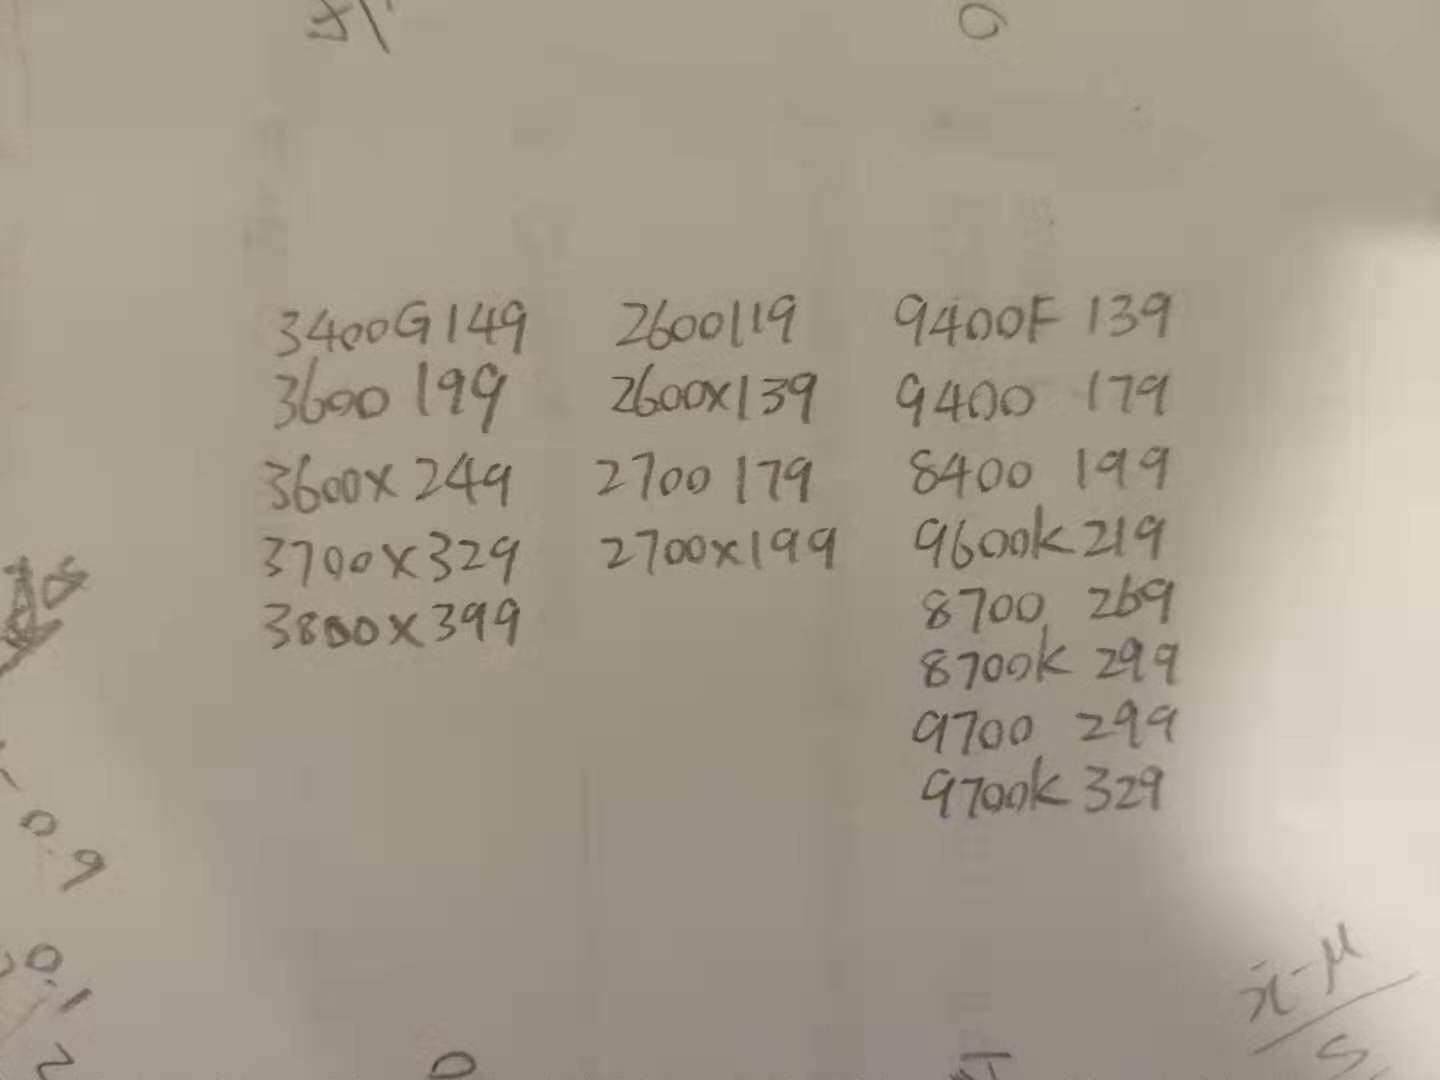 3400G 149 2600 119 9400F 139
3600 199 2600x 139 9400 179
3600x 249 2700 179 8400 199
3700x 329 2700x 199 9600k 219
3800x 399 8700 269
8700k 299
9700 299
9700k 329
0.9
0.1
x̄-μ
S